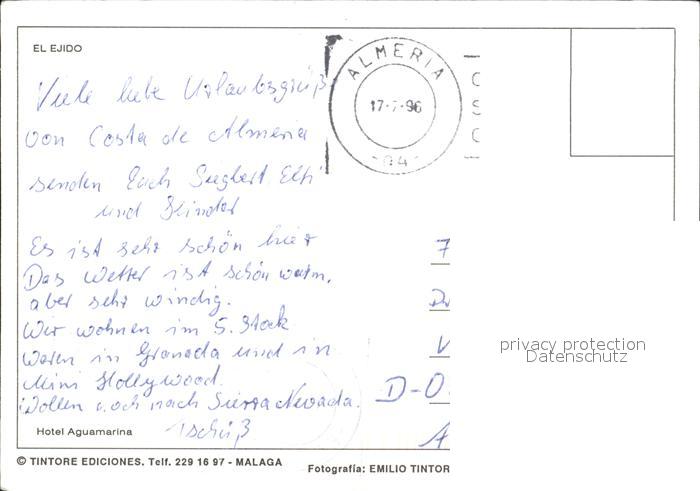 EL EJIDO
Viele liebe Urlaubsgrüß
von Costa de Almeria
senden Euch Siegbert, Elfi
und Kinder
Es ist sehr schön hier
Das Wetter ist schön warm,
aber sehr windig.
Wir wohnen im 5. Stock
Waren in Granada und in
Mini Hollywood.
Wollen noch nach Sierra Nevada.
Tschüß
Hotel Aguamarina
ALMERIA
17-7-96
-04-
D-0
privacy protection
Datenschutz
© TINTORE EDICIONES. Telf. 229 16 97 - MALAGA
Fotografía: EMILIO TINTOR